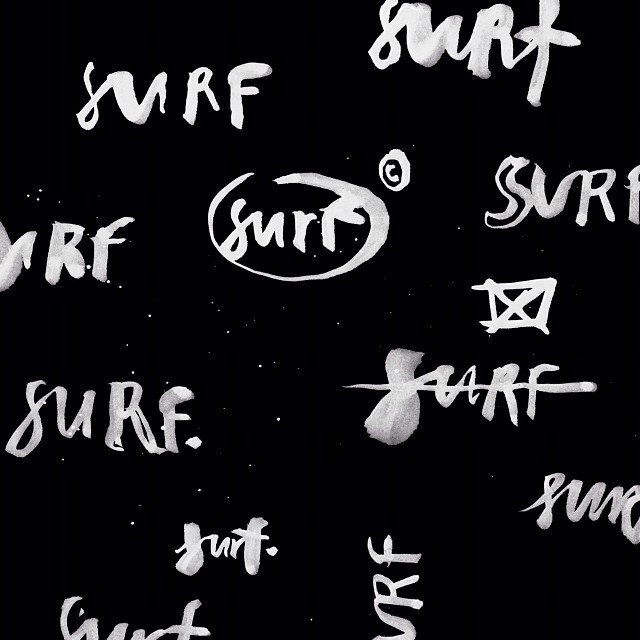 surf
SURF
surf
©
SURF
URF
SURF
SURF.
surf.
URF
surf